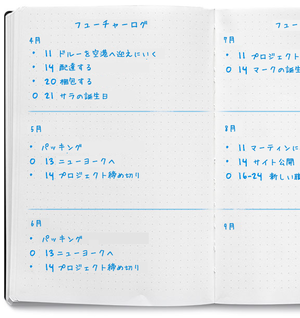 フューチャーログ
4月
• 11 ドルーを空港へ迎えにいく
• 14 配達する
• 20 梱包する
O 21 サラの誕生日
5月
• パッキング
O 13 ニューヨークへ
• 14 プロジェクト締め切り
6月
• パッキング
O 13 ニューヨークへ
• 14 プロジェクト締め切り
フュー
7月
• 11 プロジェクト
O 14 マークの誕生
8月
• 11 マーティンに
• 14 サイト公開
O 16-24 新しい
9月